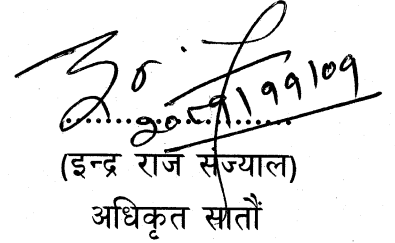 (इन्द्र राज संज्याल)
अधिकृत सातौं